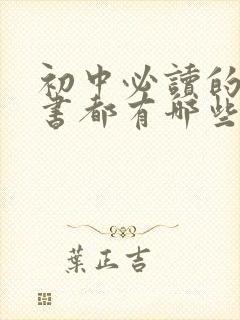 初中必讀的
書都有哪些
葉正吉